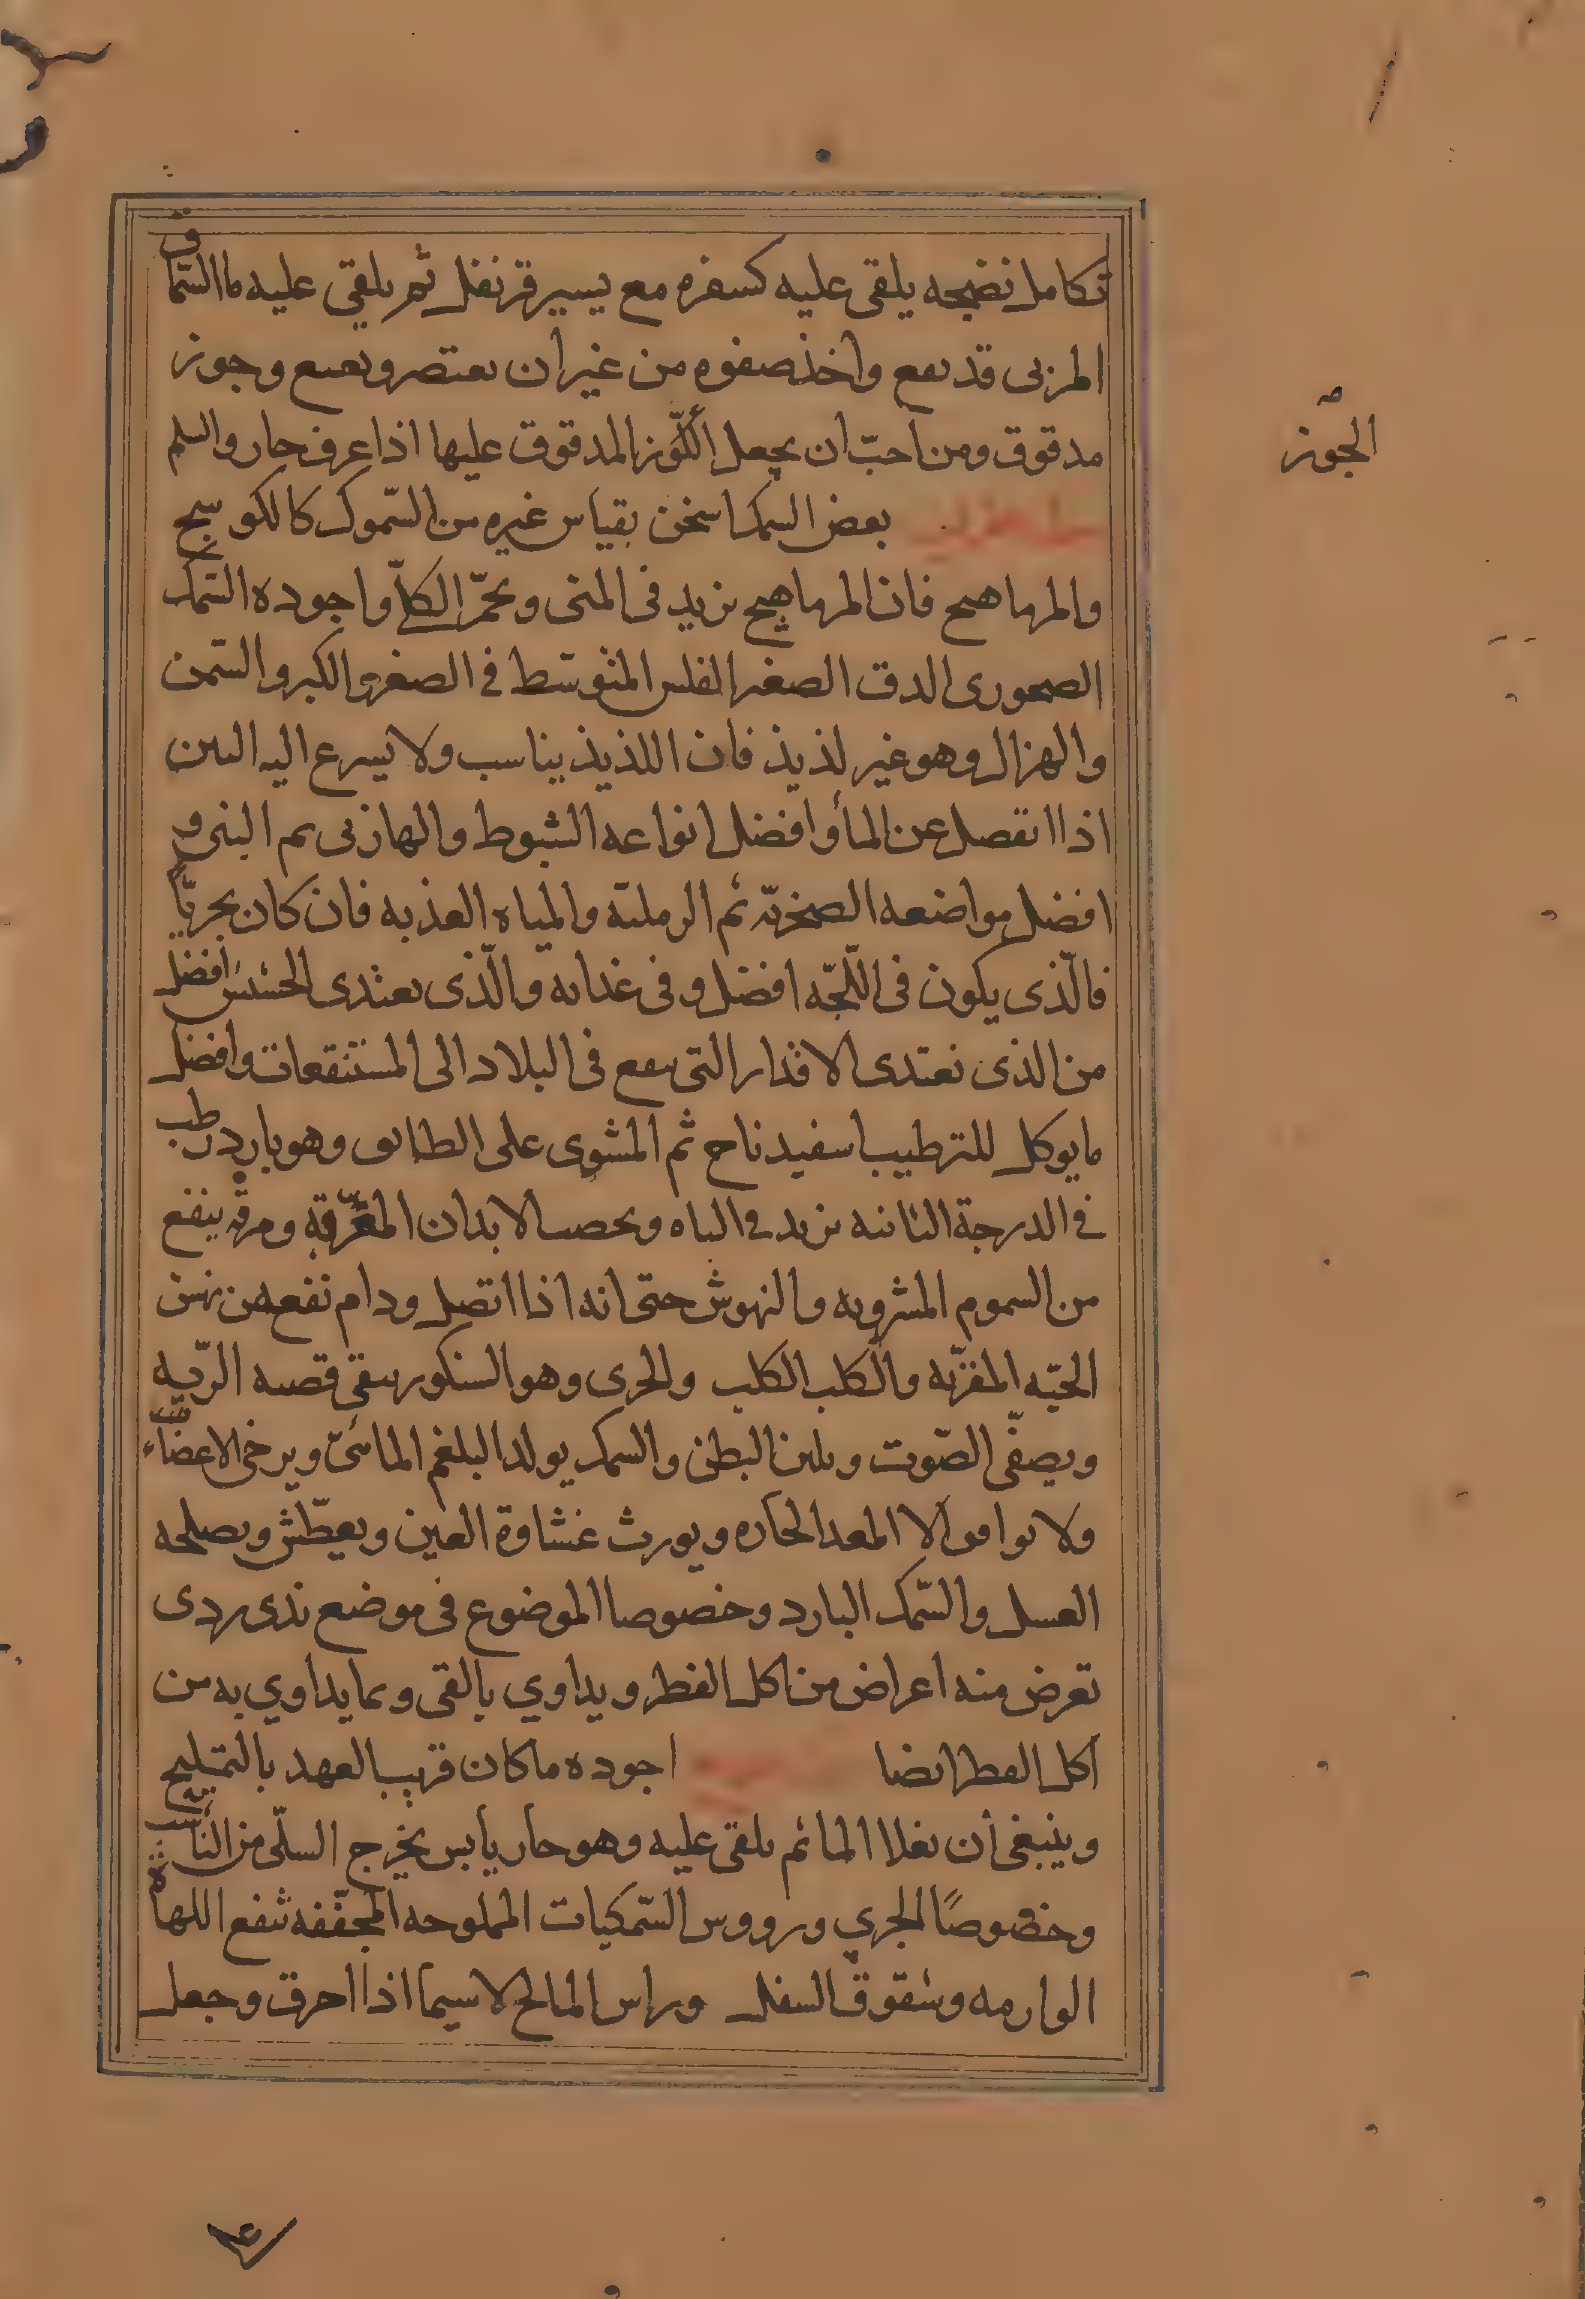 تكامل نضجه يلقى عليه كسفره مع يسير قرنفل ثم يلقى عليه ما السماق
المربى قد نقع واخذ صفوه من غير ان يعتصر ونعنع وجوز
مدقوق ومن احبّ ان يجعل اللّوز المدقوق عليها اذا غرف جاز والسلم
الجوز صح
بعض السمك اسخن بقياس غيره من السّموك كالكوسج
والمرماهيج فان المرماهيج يزيد فى المنى ويحمّر الكلّا واجوده السّمك
الصخورى الدق الصغير الفلس المتوسّط فى الصغر والكبر والسّمن
والهزال وهو غير لذيذ فان اللذيذ يناسب ولا يسرع اليه النتن
اذا انفصل عن الماء وافضل انواعه الشبوط والهازبى ثم البنى و
افضل مواضعه الصخريّه ثم الرمليّه والمياه العذبه فان كان بحريّا
فالّذى يكون فى اللّجّه افضل وفى غذائه والّذى يغتذى الحشيش افضل
من الذى يغتذى الاقذار التى تقع فى البلاد الى المستنقعات وافضل
ما يوكل للترطيب اسفيدناج ثم المشوى على الطابق وهو بارد رطب
فى الدرجة الثانيه يزيد فى الباه ويخصب الابدان ومرقه ينفع
من السموم المشروبه والنهوش حتى انه اذا اتصل ودام نفع من نهش
الحيّه المقرّنه والكلب الكلب والجرى وهو السنكور ينقى قصبه الريّه
ويصفّى الصّوت ويلين البطن والسمك يولد البلغم المائىّ ويرخى الاعضاء
ولا يوافق الا المعد الحاره ويورث غشاوة العين ويعطّش ويصلحه
العسل والسّمك البارد وخصوصا الموضوع فى موضع ندى ردى
تعرض منه اعراض من اكل الفطر ويداوي بالقى وبما يداوي به من
اكل الفطر ايضا اجوده ما كان قريب العهد بالتمليح
وينبغى أن يغلا الماء ثم يلقى عليه وهو حار يابس يخرج السلّى من الناشبه
وخصوصًا الجري ورووس السّمكيات المملوحه المجفّفه تنفع اللهاة
الوارمه وشقوق السفل وراس المالح لاسيما اذا احرق وجعل